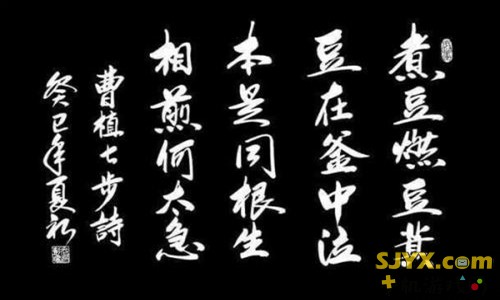 煮豆燃豆萁
豆在釜中泣
本是同根生
相煎何太急
曹植七步詩
癸巳年夏初
SJYX.com